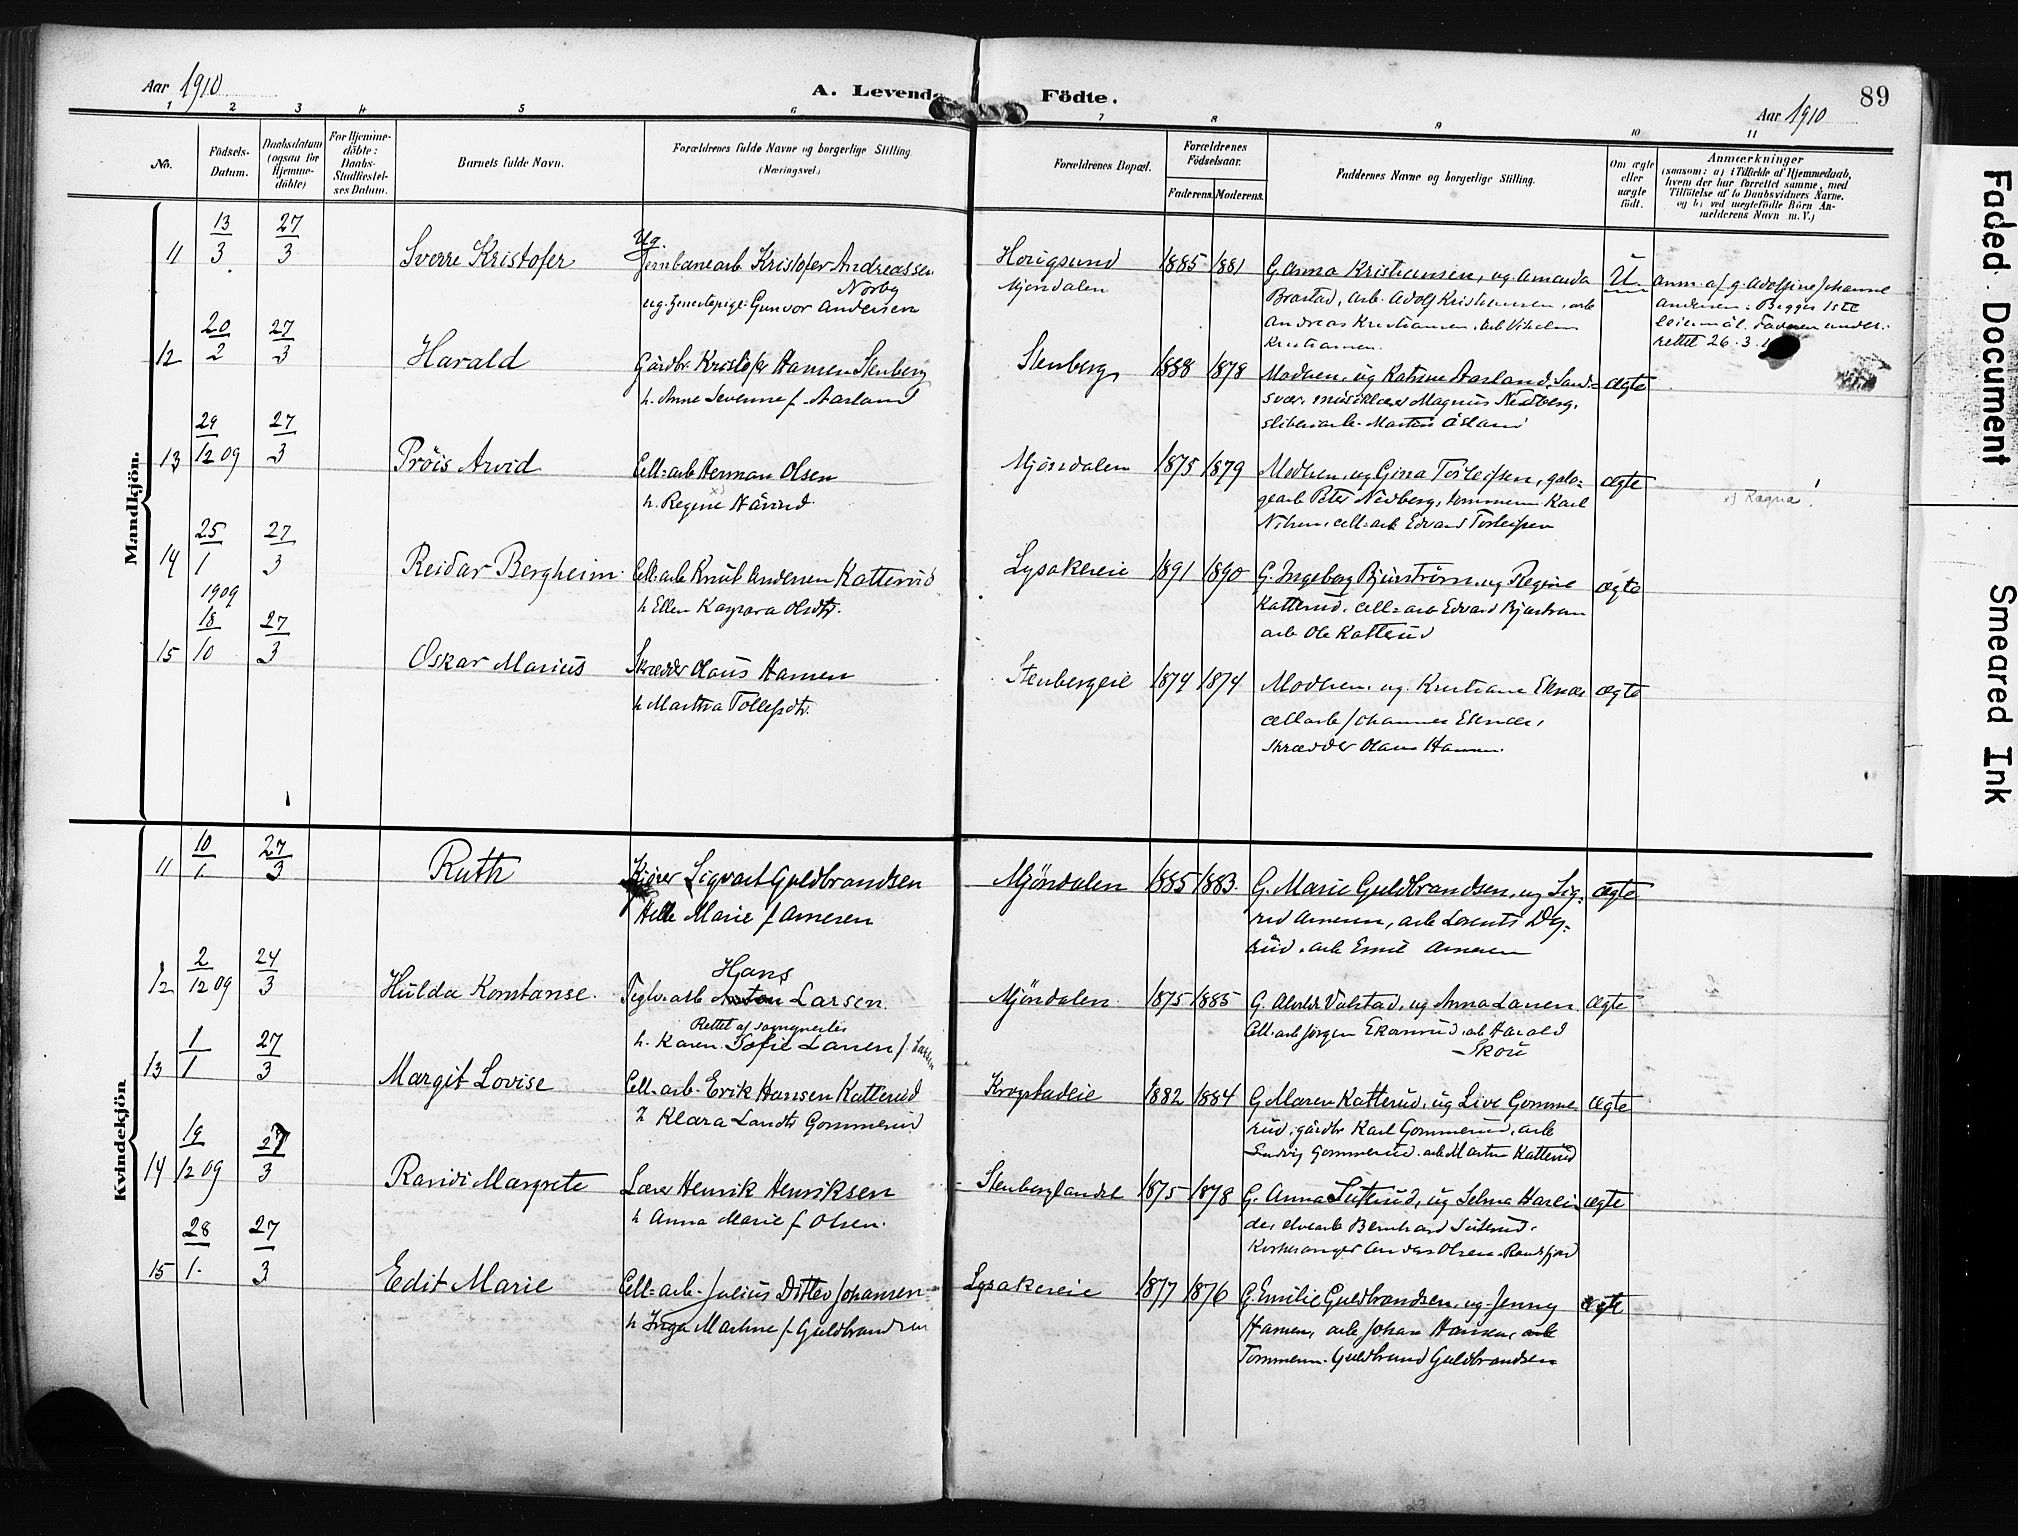 Aar 1910
A. Levende Födte.
89
Aar 1910
1 2 3 4 5 6 7 8 9 10 11
No.
Födsels-Datum.
Daabsdatum (ogsaa for Hjemmedöbte)
For Hjemmedöbte: Daabs-Stadfæstelses Datum.
Barnets fulde Navn.
Forældrenes fulde Navne og borgerlige Stilling. (Næringsvei.)
Forældrenes Bopæl.
Forældrenes Födselsaar.
Faderens. Moderens.
Faddernes Navne og borgerlige Stilling.
Om ægte eller uægte født.
Anmærkninger
(saasom: a) i Tilfælde af Hjemmedaab, hvem der har forrettet samme, med Tilföielse af to Daabsvidners Navne, og b) ved uægtefödte Börn Anmelderens Navn m. V.)
Mandkjön.
11 13/3 27/3 Sverre Kristofer
Ug. Jernbanearb. Kristofer Andreassen
Norby
ug. Gunvor Andersen
Hougsund
Mjöndalen
1885 1881
G. Anna Kristiansen, ug. Amanda
Brastad, arb. Adolf Kristiansen, arb
Andreas Kristiansen, arb Vihelm
Kristiansen.
U.
anm. af g. Adolfine Johanne
Andersen. Begges 1ste
leiermål. Faderen under-
rettet 26.3.
12 20/2 27/3 Harald
Gårdbr. Kristofer Hansen Stenberg
h. Anne Severine f. Aasland
Stenberg
1888 1878
Modren, ug Katrine Aasland, Sand-
svær, Magnus Nedberg,
sliberiarb. Martin Åsland
ægte
13 29/12 09 27/3 Pröis Arvid
Cell-arb Herman Olsen
h. Regine x)
Mjöndalen
1875 1879
Modren, ug Gina Torleifsen, galo-
gearb Peter Nedberg, tømmerm Karl
cell-arb Edvard Torleifsen
ægte
x) Ragna!
14 25/1 27/3 Reidar Bergheim
Cell-arb Knut Andersen Katterud
h Ellen Kaspara Olsdtr.
Lysakereie
1891 1890
G. Ingeborg Bjurström, ug Regine
Katterud, cell-arb Edvard Bjurstrøm
arb Ole Katterud
ægte
1909
15 18/10 27/3 Oskar Marius
Skrædder Olaus Hansen
h Martha Tollefsdtr.
Stenbergeie
1874 1874
Modren, ug. Kristiane Eknæs
cellarb Johannes Eknæs,
skrædder Olaus Hansen.
ægte
Kvindekjön
11 10/1 27/3 Ruth
Kjører Sigvart Guldbrandsen
Marie f Arnesen
Mjöndalen
1885 1883.
G. Marie Guldbrandsen, ug Sig-
rid Arnesen, arb Lorents Dy-
rud, arb Emil Arnesen
ægte
12 2/12 09 24/3 Hulda Konstanse.
Hans
Teglv.arb Anton Larsen
Rettet af sogneprest
h. Karen Sofie Larsen f.
Mjöndalen
1875 1885
G. Valstad, ug Anna Larsen
Cell-arb Jørgen Ekornrud, arb Harald
Skou
ægte
13 1/1 27/3 Margit Lovise
Cell-arb. Erik Hansen Katterud
h Klara Gommerud
Krogstadeie
1882 1884
G Maren Katterud, ug Live Gomme
rud, gårdbr Karl Gommerud, arb
Ludvig Gommerud, arb Martin Katterud
ægte
14 19/12 09 27/3 Randi Margrete
Lærer Henrik Henriksen
h Anna Marie f Olsen.
Stenberglandet
1875 1878
G. Anna Seterud, ug Selma
elvearb Bernhard Seterud,
Kirkesanger Anders Olsen. Randsfjord
ægte
15 28/1 27/3 Edit Marie
Cell-arb. Julius Ditlev Johansen
h Inga Marline f. Guldbrandsen
Lysakereie
1877 1876
G. Emilie Guldbrandsen, ug Jenny
Hansen, arb Johan Hansen,
Tømmerm. Guldbrand Guldbrandsen
ægte
Faded Document
Smeared Ink